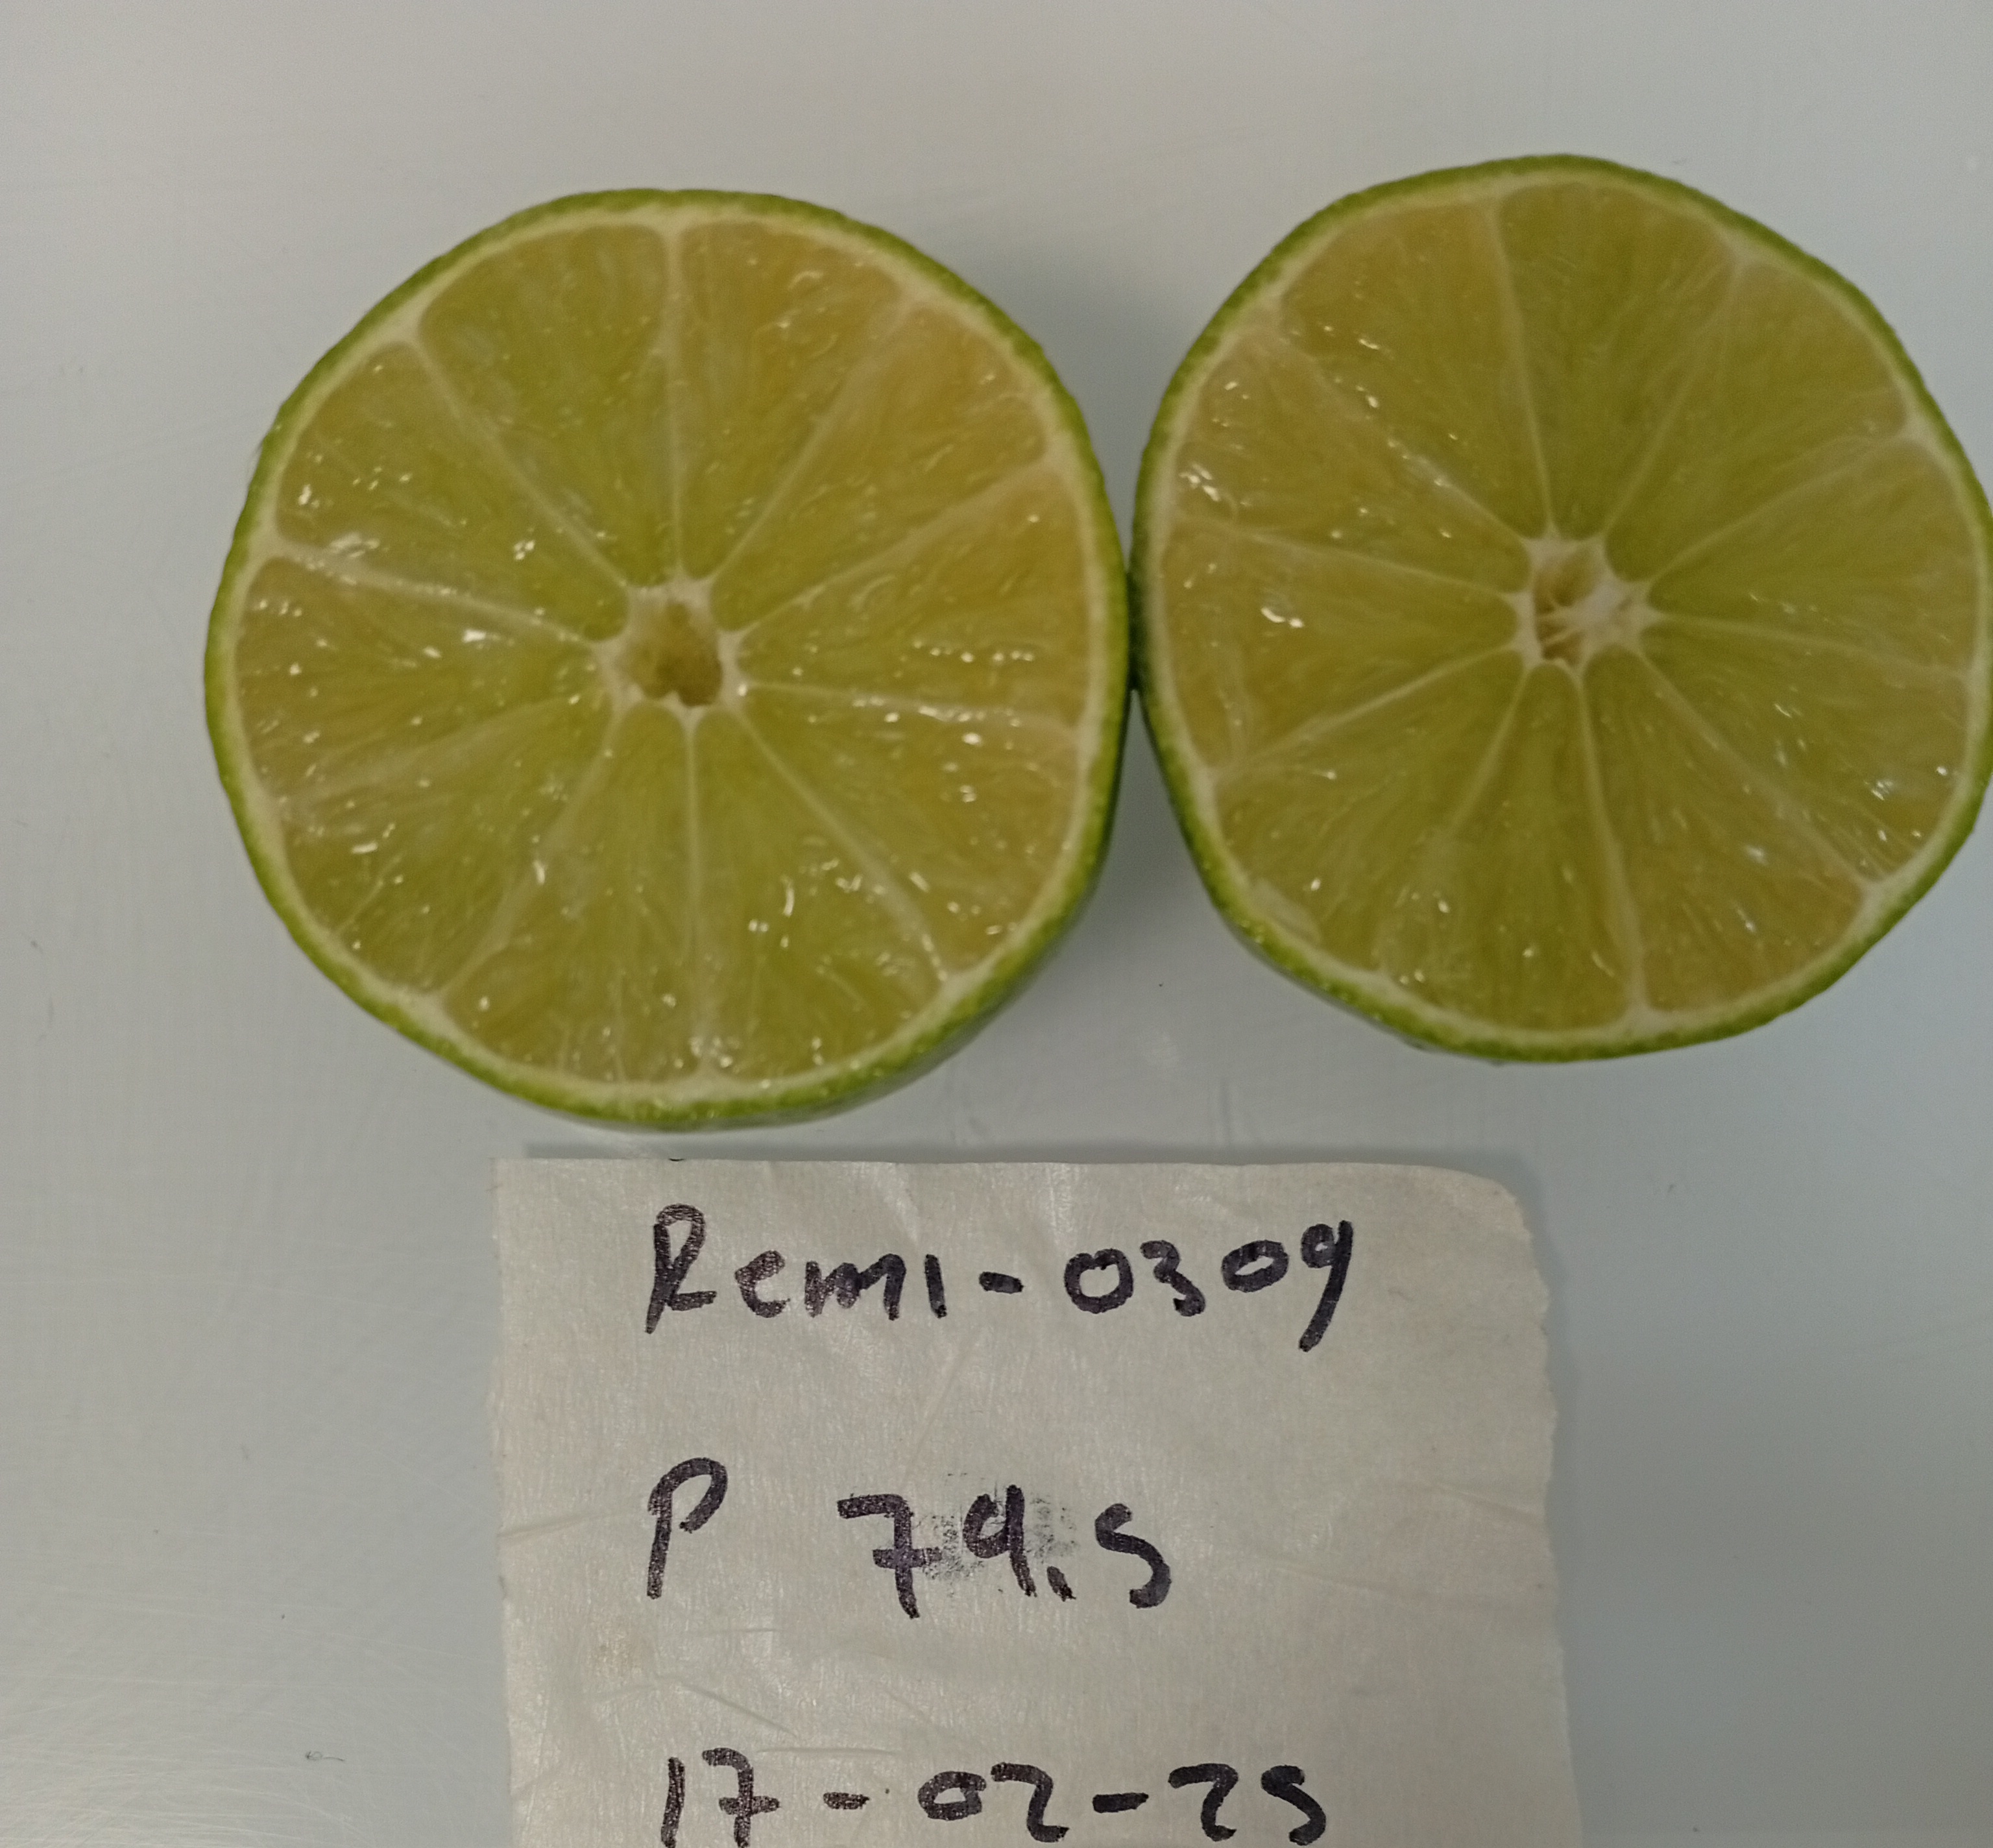 Remi-0309
P 79.5
17-02-25